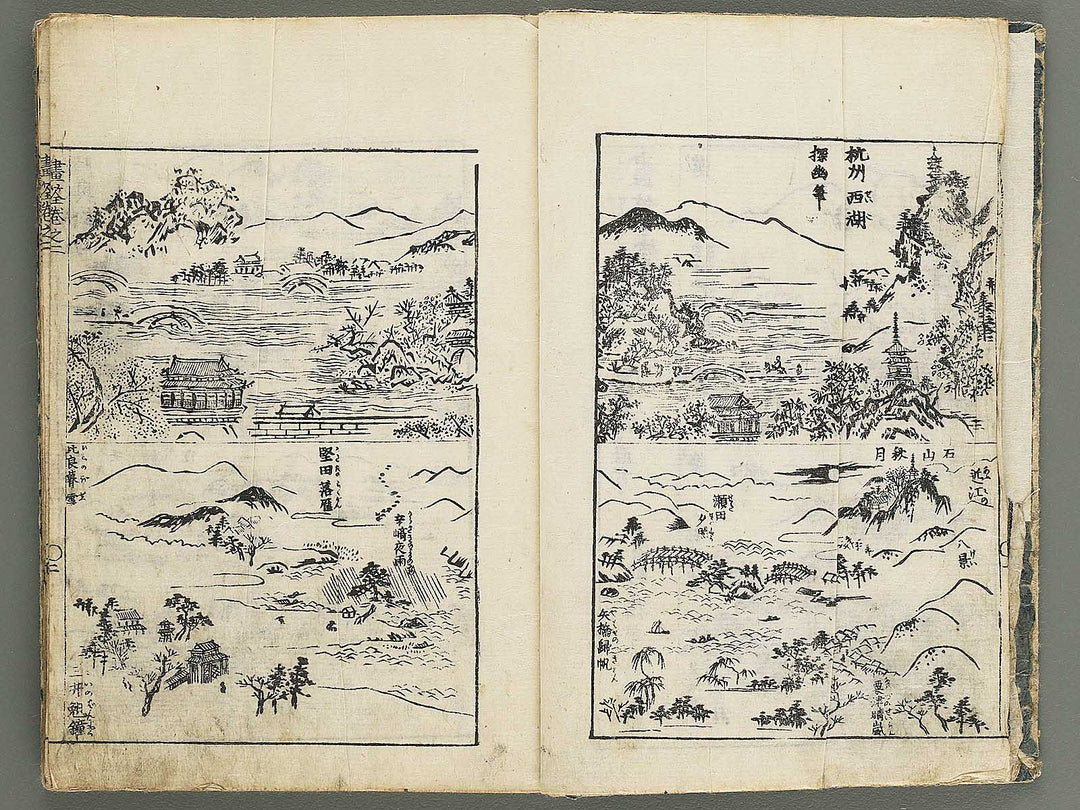 杭州西湖
探幽筆
近江の
八景
石山秋月
瀬田
夕照
矢橋歸帆
粟津晴嵐
堅田落雁
辛崎夜雨
比良暮雪
三井晩鐘
畫筌巻之三